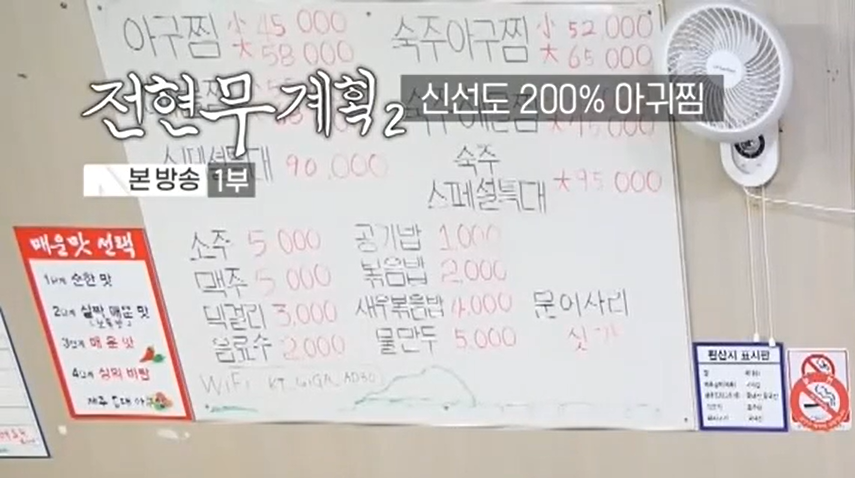 아구찜 小 45 000
大 58 000
숙주아구찜 小 52 000
大 65 000
전현무계획2
신선도 200% 아귀찜
본방송 1부
90.000
숙주
스페셜특대 大95 000
소주 5 000
맥주 5 000
막걸리 3,000
음료수 2,000
공기밥 1,000
볶음밥 2,000
새우볶음밥 4,000
물만두 5,000
문어사리
싯가
WiFi KT_GiGA_AD30
매운맛 선택
1단계 순한 맛
2단계 살짝 매운 맛
3단계 매운 맛
4단계
제주 등대 아구찜
원산지 표시판